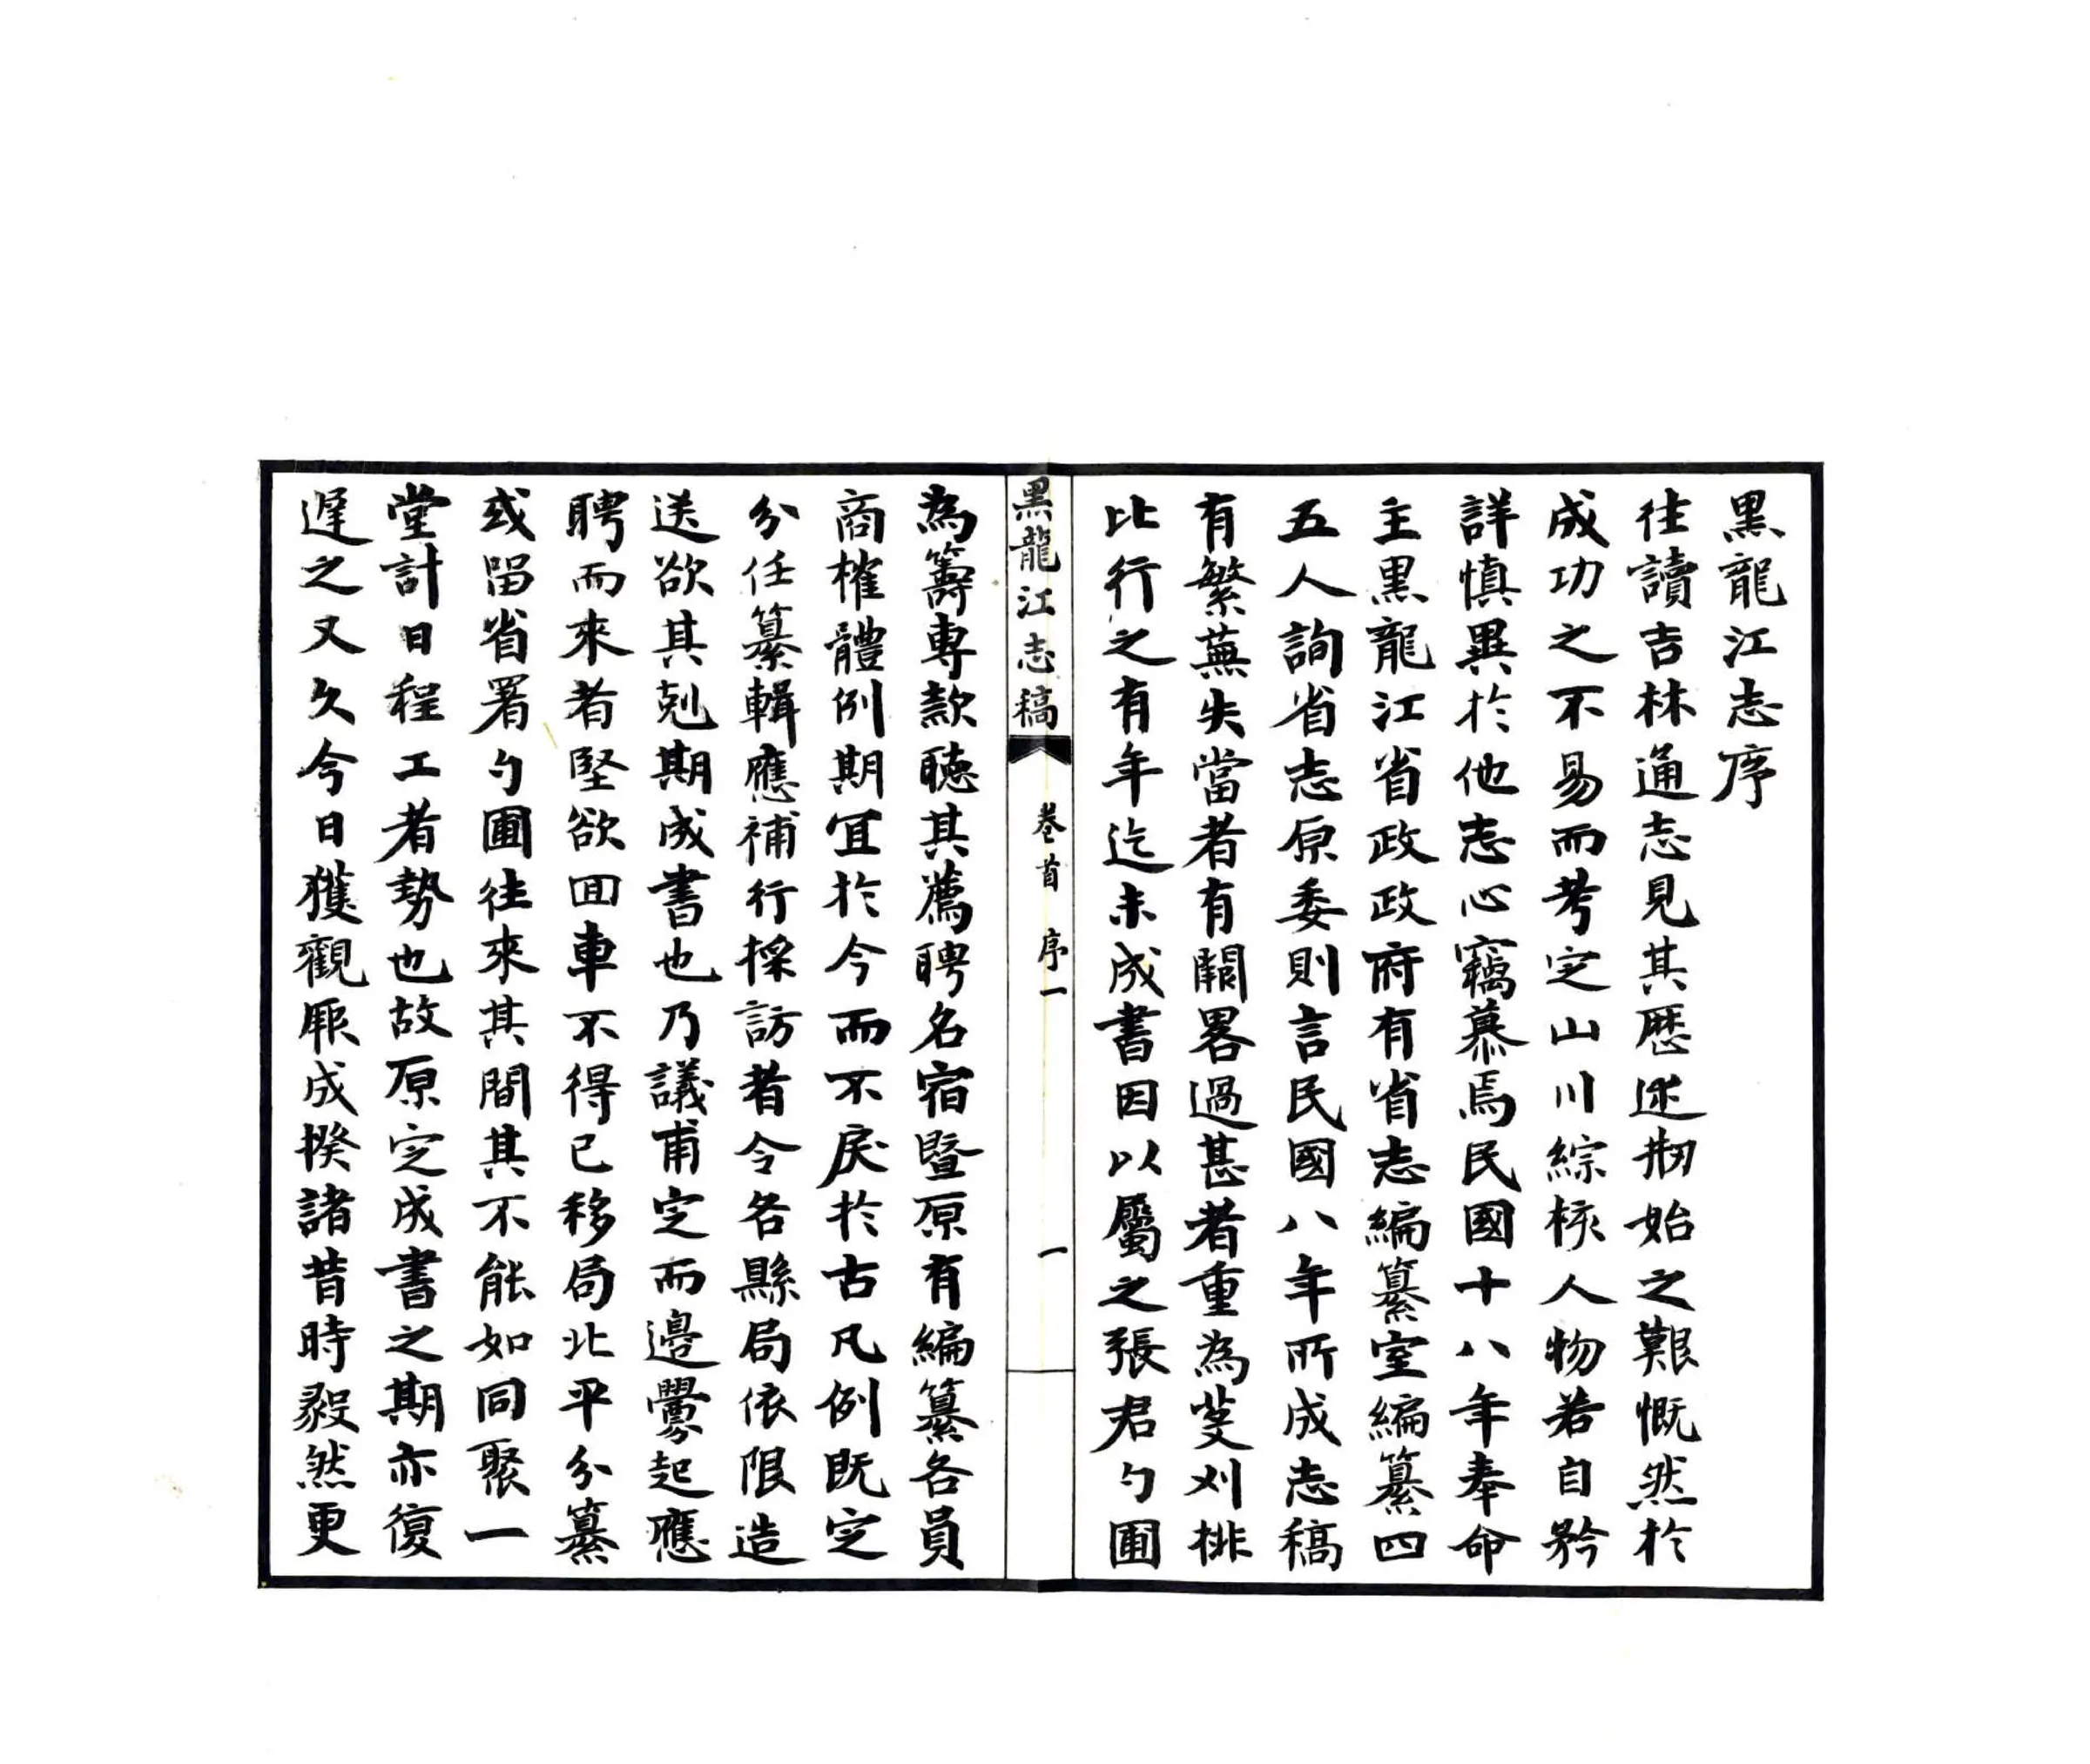 黑龍江志序
往讀吉林通志見其歷述刱始之艱慨然於
成功之不易而考定山川綜核人物若自矜
詳慎異於他志心竊慕焉民國十八年奉命
主黑龍江省政政府有省志編纂室編纂四
五人詢省志原委則言民國八年所成志稿
有繁蕪失當者有闕畧過甚者重為芟刈排
比行之有年迄未成書因以屬之張君勺圃
黑龍江志稿 卷首 序一 一
為籌專款聽其薦聘名宿暨原有編纂各員
商榷體例期宜於今而不戾於古凡例既定
分任纂輯應補行採訪者令各縣局依限造
送欲其剋期成書也乃議甫定而邊釁起應
聘而來者堅欲回車不得已移局北平分纂
或留省署勺圃往來其間其不能如同聚一
堂計日程工者勢也故原定成書之期亦復
遲之又久今日獲觀厥成揆諸昔時毅然更